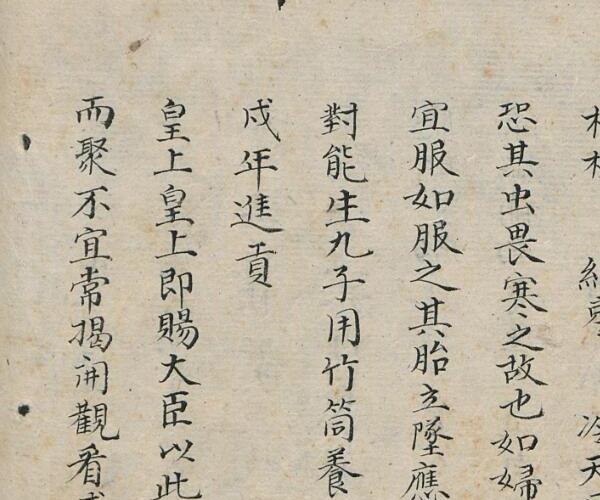 冷天
恐其虫畏寒之故也如婦
宜服如服之其胎立墜應
對能生九子用竹筒養
戌年進貢
皇上皇上即賜大臣以此
而聚不宜常揭開觀看